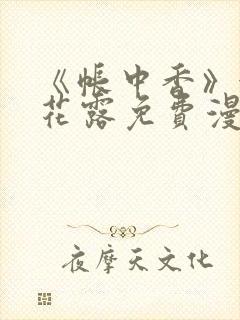 《帐中香》
花露免费漫
夜摩天文化